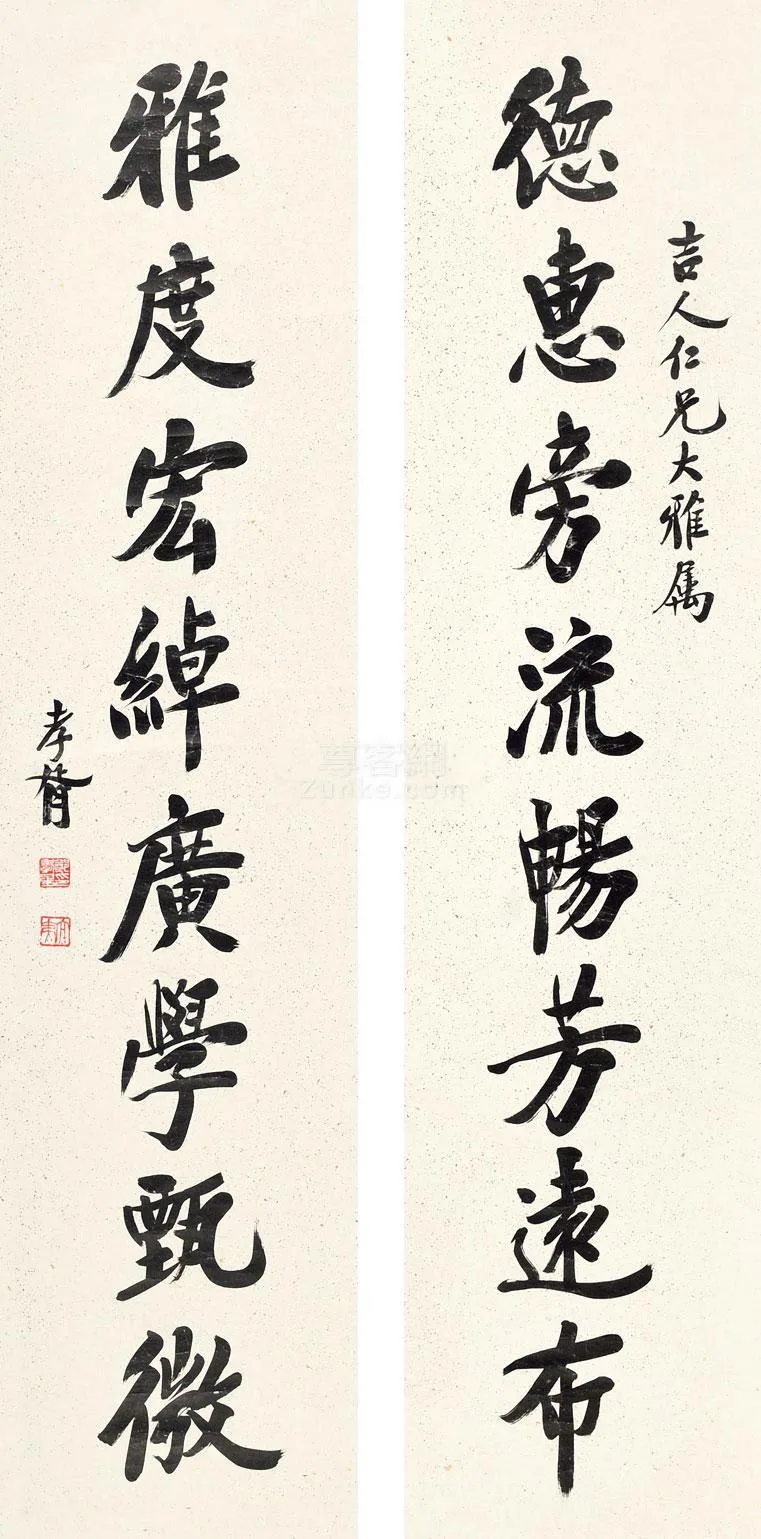 吉人仁兄大雅属
德惠旁流暢芳遠布
雅度宏綽廣學甄微
孝胥
尊客網
Zunke.com